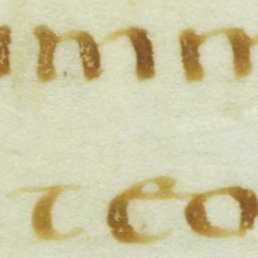 m
teo